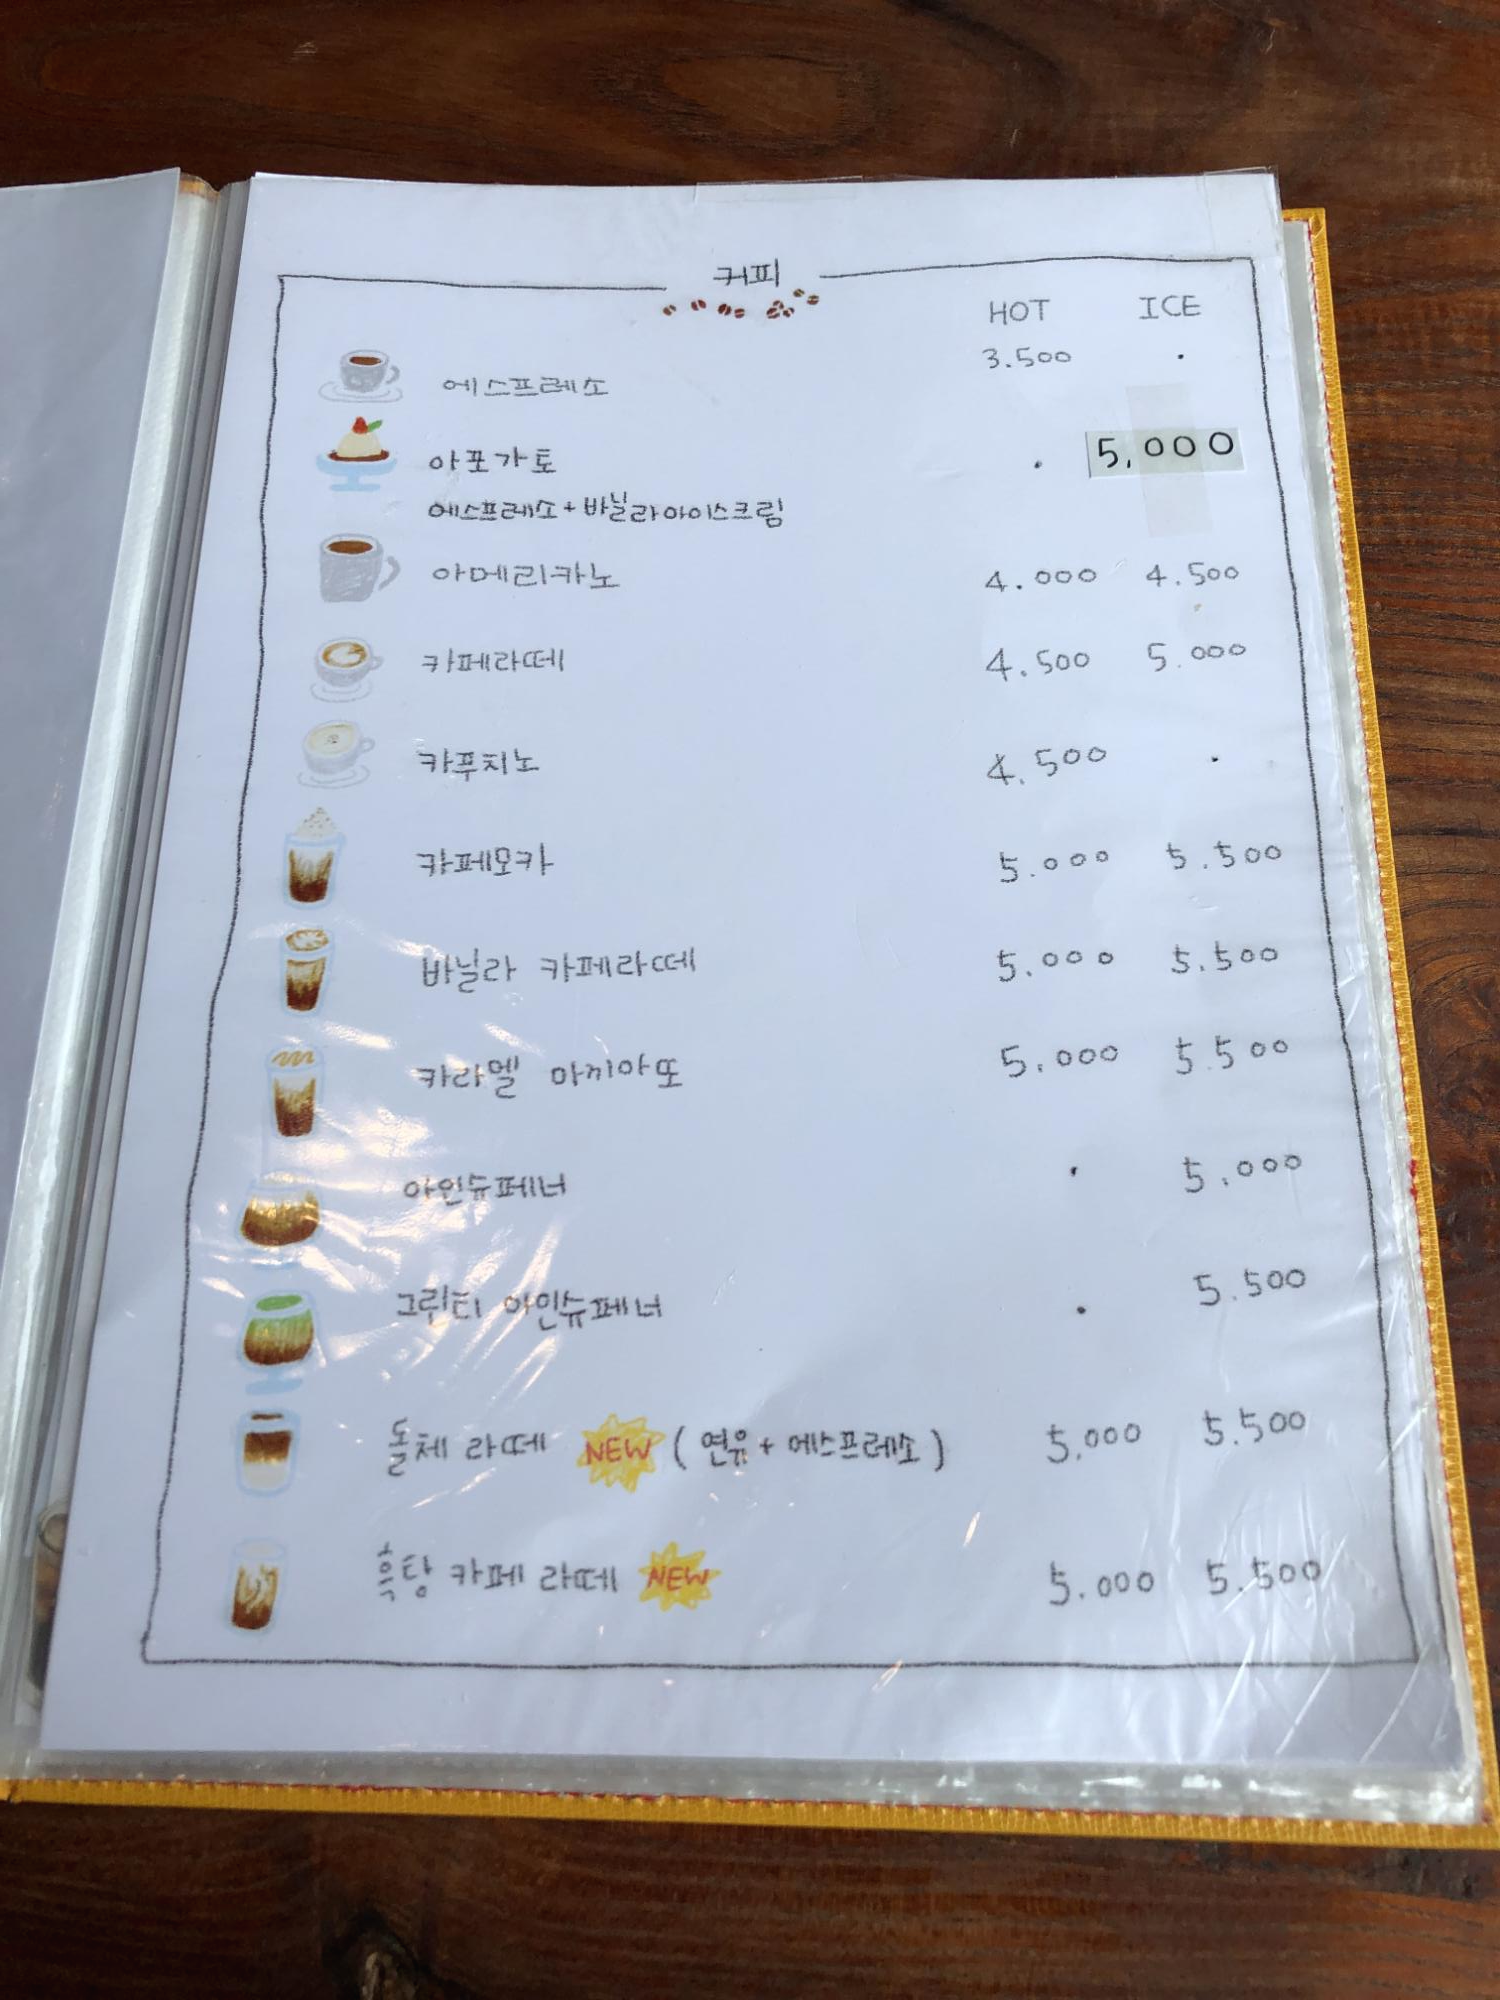 커피
HOT ICE
에스프레소 3.500 .
아포가토 . 5,000
에스프레소+바닐라아이스크림
아메리카노 4.000 4.500
카페라떼 4.500 5.000
카푸치노 4.500 .
카페모카 5.000 5.500
바닐라 카페라떼 5.000 5.500
카라멜 마끼아또 5.000 5.500
아인슈페너 . 5.000
그린티 아인슈페너 . 5.500
돌체 라떼 NEW (연유+에스프레소) 5.000 5.500
흑당 카페 라떼 NEW 5.000 5.500